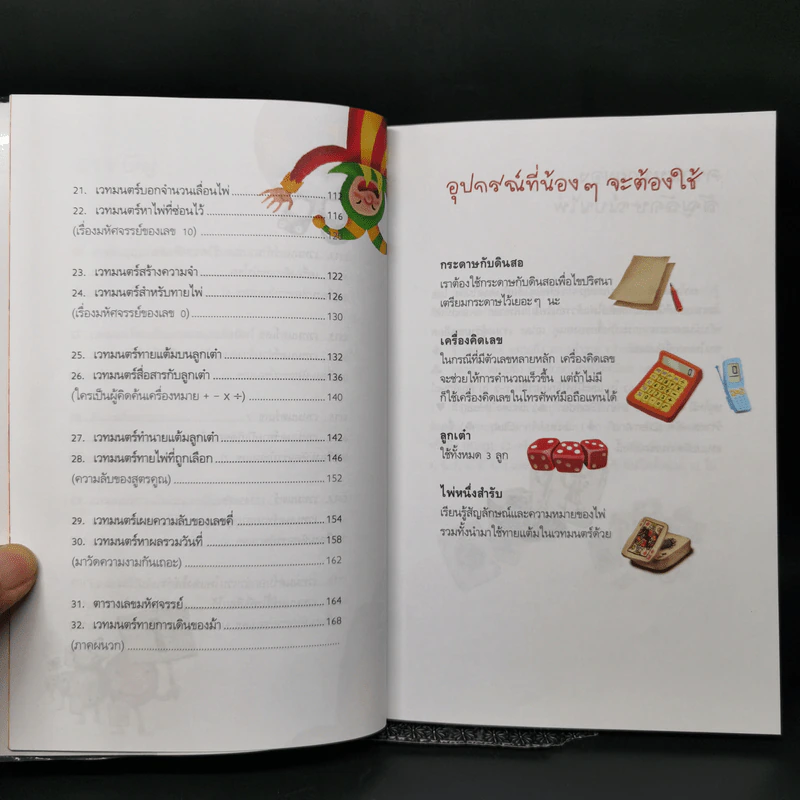 21. เวทมนตร์บอกจำนวนเลื่อนไพ่ 112
22. เวทมนตร์หาไพ่ที่ซ่อนไว้ 116
(เรื่องมหัศจรรย์ของเลข 10) 120
23. เวทมนตร์สร้างความจำ 122
24. เวทมนตร์สำหรับทายไพ่ 126
(เรื่องมหัศจรรย์ของเลข 0) 130
25. เวทมนตร์ทายแต้มบนลูกเต๋า 132
26. เวทมนตร์สื่อสารกับลูกเต๋า 136
(ใครเป็นผู้คิดค้นเครื่องหมาย + − x ÷) 140
27. เวทมนตร์ทำนายแต้มลูกเต๋า 142
28. เวทมนตร์ทายไพ่ที่ถูกเลือก 146
(ความลับของสูตรคูณ) 152
29. เวทมนตร์เผยความลับของเลขคี่ 154
30. เวทมนตร์หาผลรวมวันที่ 158
(มาวัดความงามกันเถอะ) 162
31. ตารางเลขมหัศจรรย์ 164
32. เวทมนตร์ทายการเดินของม้า 168
(ภาคผนวก)
อุปกรณ์ที่น้อง ๆ จะต้องใช้
กระดาษกับดินสอ
เราต้องใช้กระดาษกับดินสอเพื่อไขปริศนา
เตรียมกระดาษไว้เยอะ ๆ นะ
เครื่องคิดเลข
ในกรณีที่มีตัวเลขหลายหลัก เครื่องคิดเลข
จะช่วยให้การคำนวณเร็วขึ้น แต่ถ้าไม่มี
ก็ใช้เครื่องคิดเลขในโทรศัพท์มือถือแทนได้
ลูกเต๋า
ใช้ทั้งหมด 3 ลูก
ไพ่หนึ่งสำรับ
เรียนรู้สัญลักษณ์และความหมายของไพ่
รวมทั้งนำมาใช้ทายแต้มในเวทมนตร์ด้วย